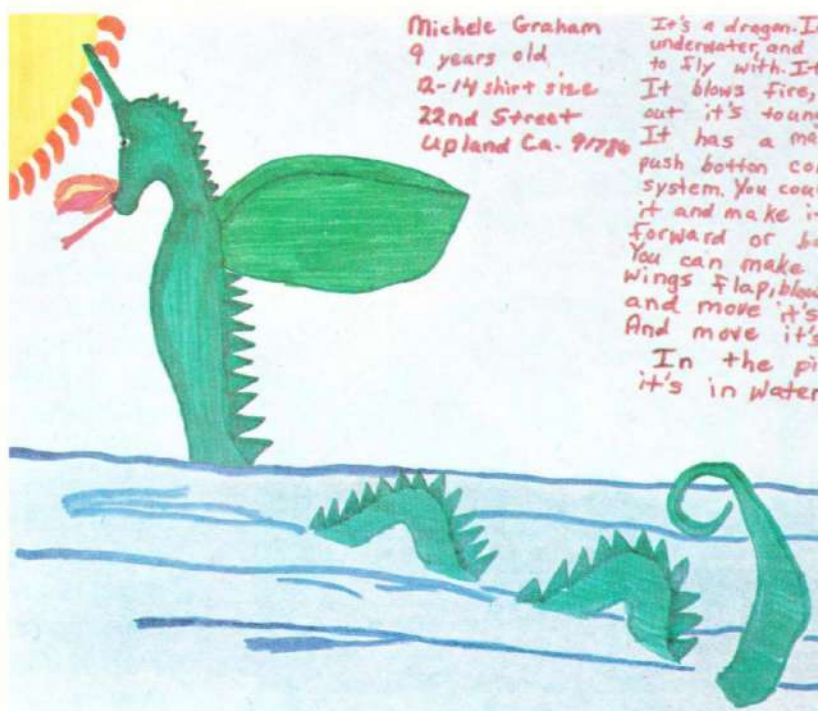 Michele Graham
9 years old
12-14 shirt size
22nd Street
Upland Ca. 91786
It's a dragon.
underwater, and
to fly with. It
It blows fire,
out it's
It has a
push botton
system. You
it and make
forward or
You can make
wings flap,
and move it's
And move it's
In the
it's in water